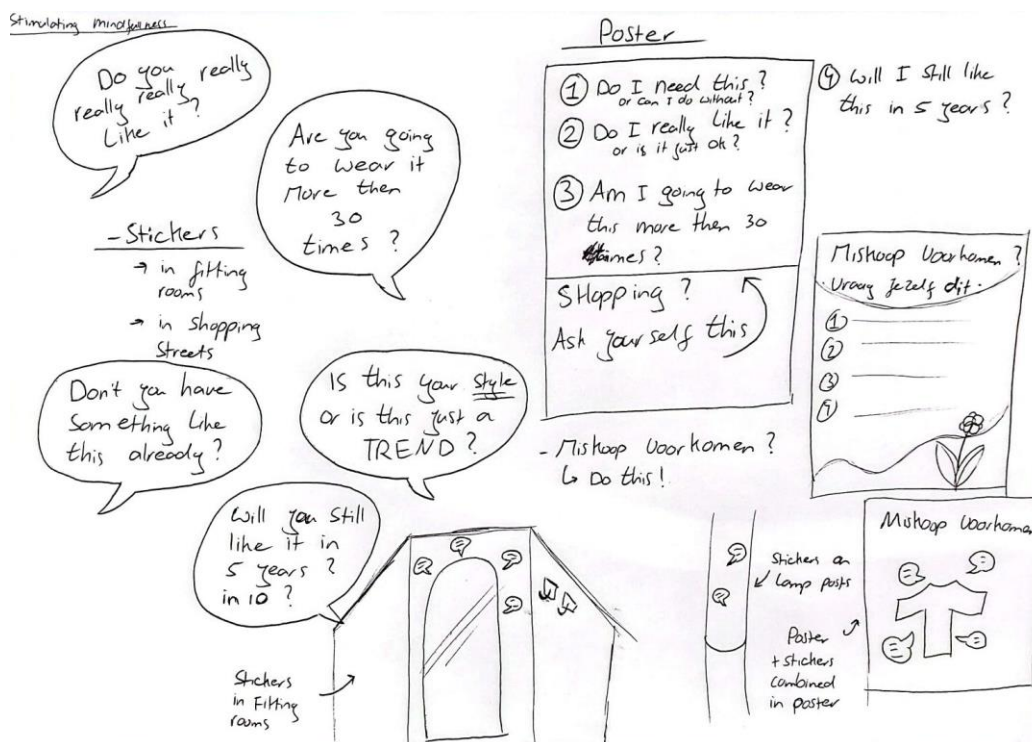 Stimulating mindfullness
Do you
really really really
Like it?
Are you going
to wear it
More then
30
times?
- Stickers
→ in fitting
rooms
→ in shopping
Streets
Don't you have
Something Like
this already?
Is this your style
or is this just a
TREND?
Will you Still
like it in
5 years?
in 10?
Stickers
in Fitting
rooms
Poster
① Do I need this?
or can I do without?
② Do I really Like it?
or is it just ok?
③ Am I going to wear
this more then 30
times?
SHopping?
Ask yourself this
④ Will I Still like
this in 5 years?
Miskoop Voorkomen?
Vraag jezelf dit.
①
②
③
④
- Miskoop Voorkomen?
↳ Do this!
Stickers on
Lamp posts
Poster
+ stickers
combined
in poster
Miskoop Voorkomen